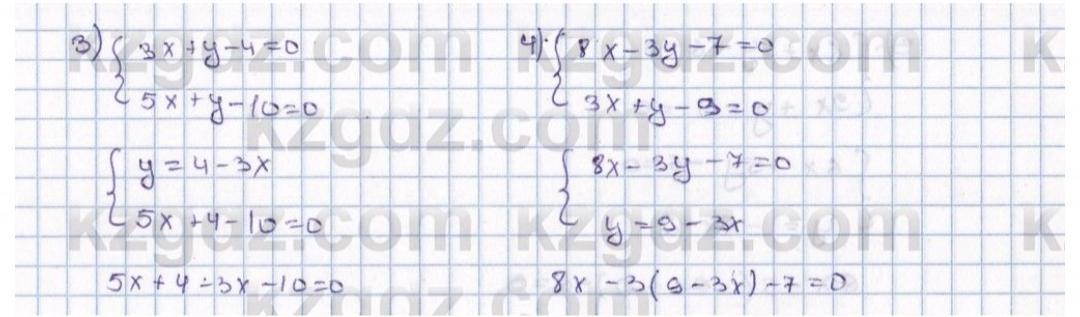 3) { 3x+y-4=0
5x+y-10=0
{ y=4-3x
5x+4-10=0
5x+4-3x-10=0
4) { 8x-3y-7=0
3x+y-9=0
{ 8x-3y-7=0
y=9-3x
8x-3(9-3x)-7=0
kzgdz.com
kzgdz.com
kzgdz.com
kzgdz.com
kzgdz.com